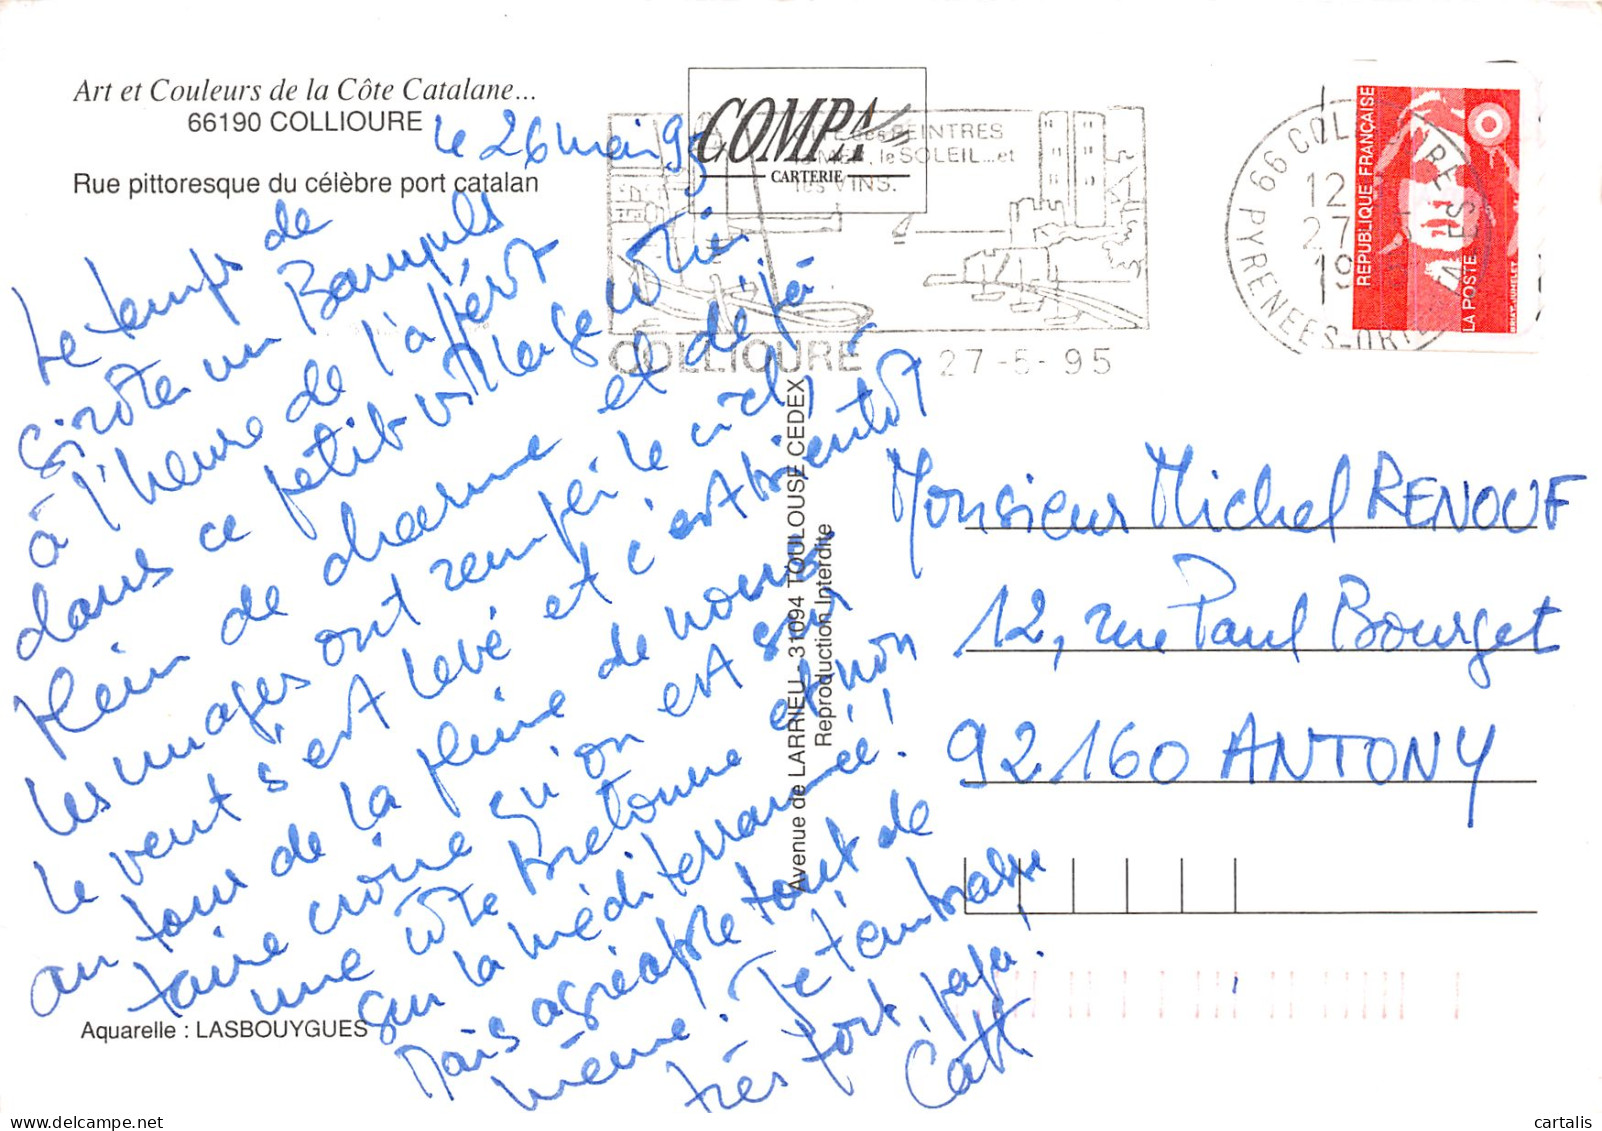 Art et Couleurs de la Côte Catalane...
66190 COLLIOURE
Rue pittoresque du célèbre port catalan
le 26 mai 95
Le temps de
siroter un Banyuls
à l'heure de l'apéro
dans ce petit village côtier
plein de charme et déjà
les nuages ont rempli le ciel,
le vent s'est levé et c'est bientôt
au tour de la pluie de nous
faire croire qu'on est sur
une côte bretonne et non
sur la méditerrannée !
Mais agréable tout de
même. Je t'embrasse
très fort, papa !
Cath
Aquarelle : LASBOUYGUES
COMPA
CARTERIE
PEINTRES
le SOLEIL...et
les VINS.
COLLIOURE
27-5-95
66 COLLIOURE
12
27
19
PYRENEES-ORIENTALES
REPUBLIQUE FRANÇAISE
LA POSTE
Avenue de LARRIEU - 31094 TOULOUSE CEDEX
Reproduction Interdite
Monsieur Michel RENOUF
12, rue Paul Bourget
92160 ANTONY
delcampe.net
cartalis